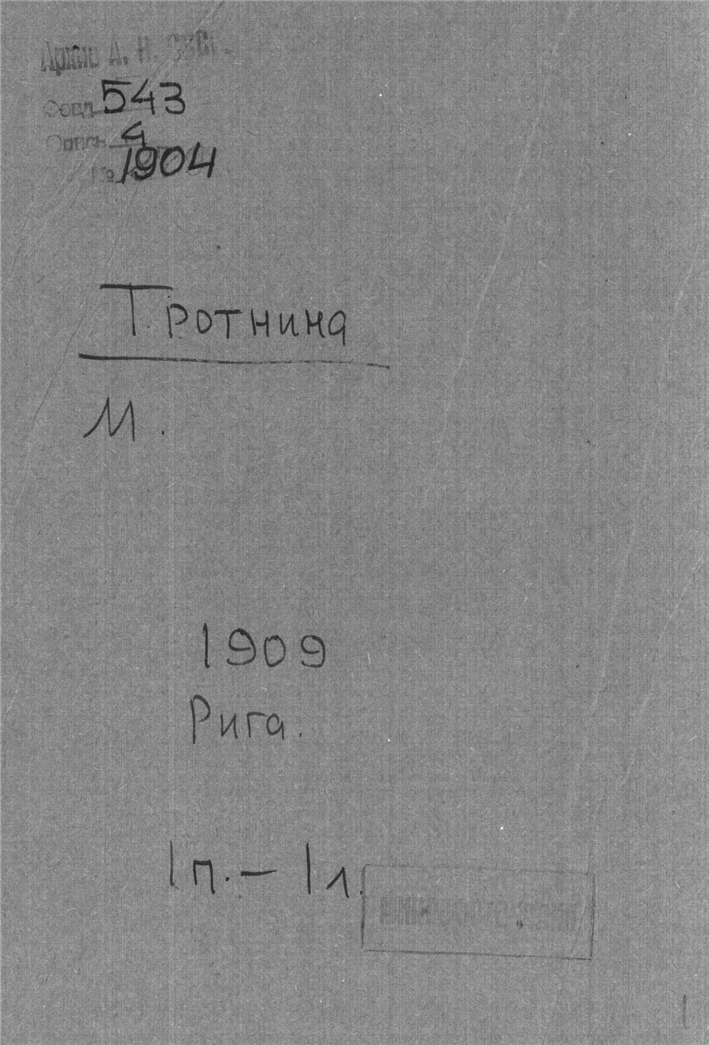 Архив А. Н. СССР.
Фонд 543
Опись 4
№ 1904
Тротнина
М.
1909
Рига.
1п. — 1л.
1